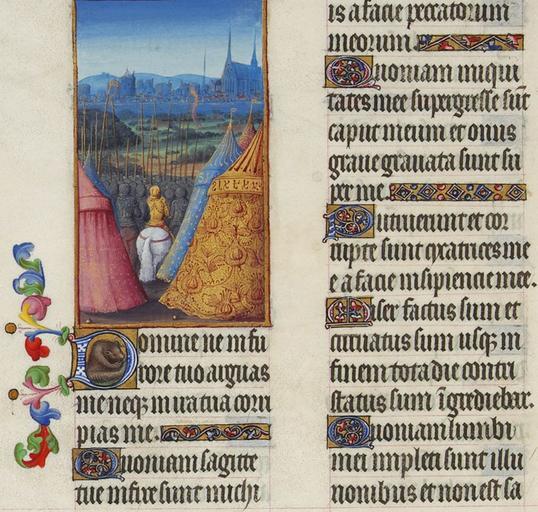 Domine ne in fu
rore tuo arguas
me neq; in ira tua corri
pias me.
Quoniam sagitte
tue infixe sunt michi
is a facie peccatorum
meorum
Quoniam iniqui
tates mee supergresse sūt
caput meum et onus
graue grauata sunt su
per me
Putruerunt et cor
rupte sunt cicatrices me
e a facie insipiencie mee.
Miser factus sum et
curuatus sum usq; in
finem tota die contri
status sum īgrediebar.
Quoniam lumbi
mei impleti sunt illu
sionibus et non est sa